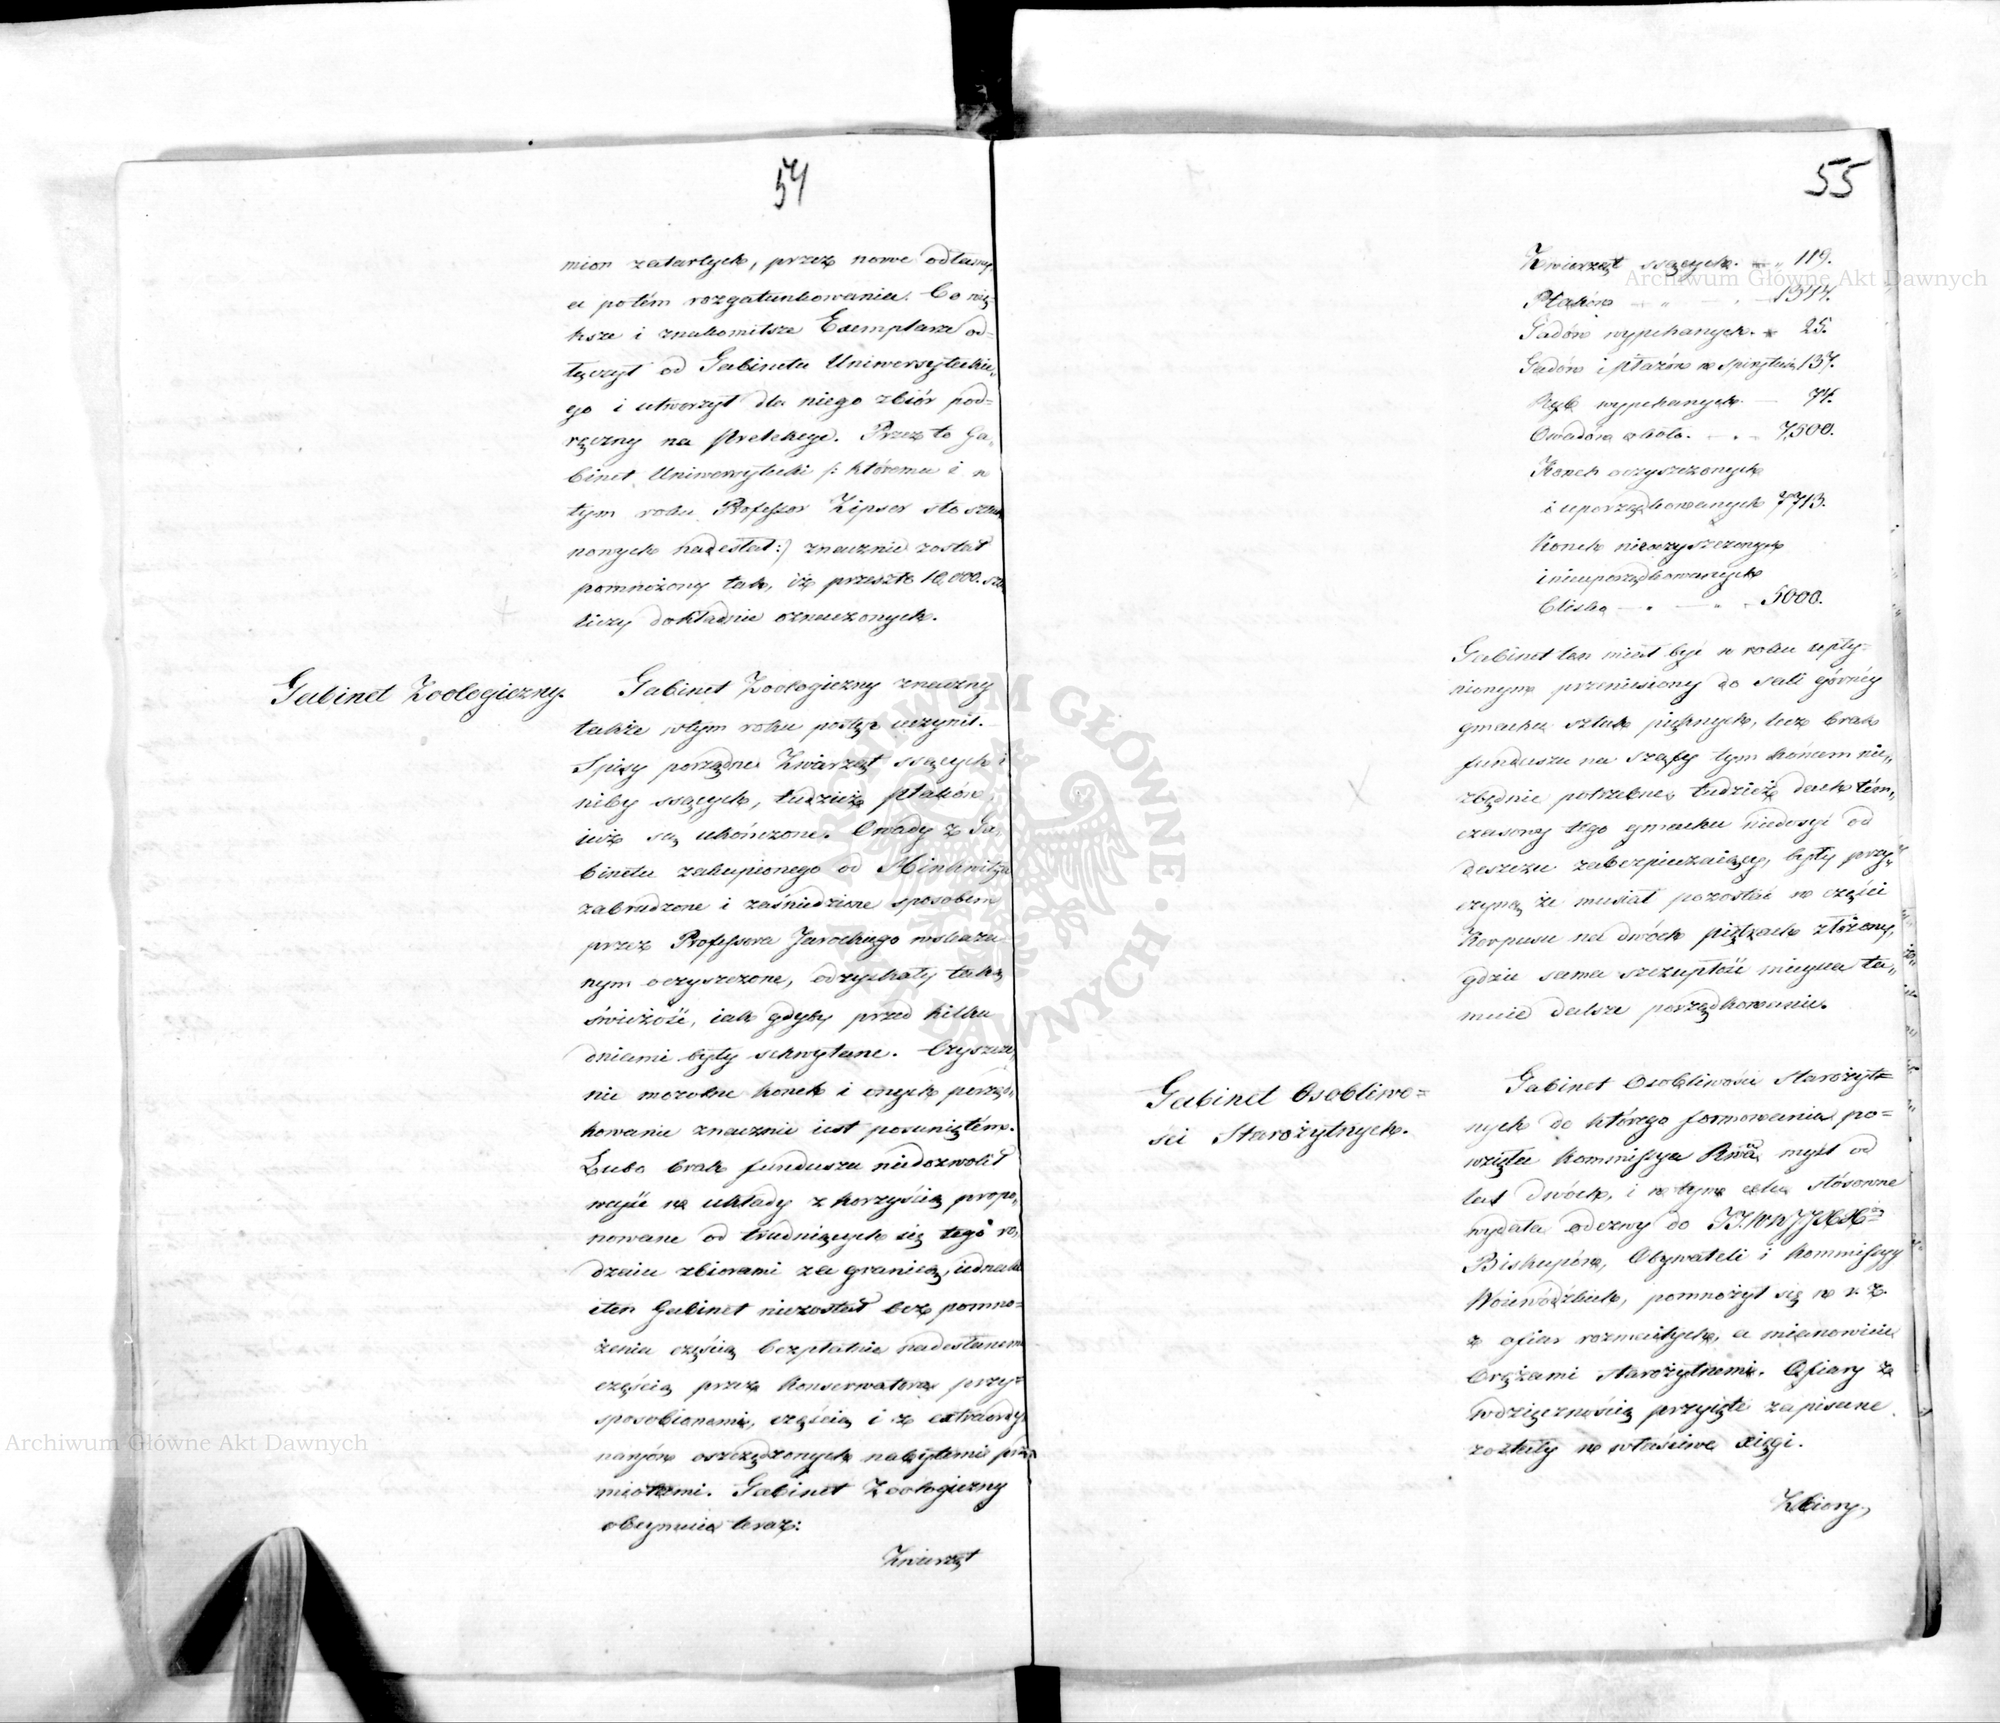 54
mion zatartych, przez nowe odłamy,
a potém rozgatunkowania. Co więk-
ksze i znakomitsze Exemplarze od-
łączył od Gabinetu Uniwersyteckie,,
go i utworzył dla niego zbiór pod-
ręczny na Prelekcye. Przez to Ga,,
binet Uniwersytecki /: któremu i w
tym roku Professor Zipser sto sztuk
nowych nadesłał :/ znacznie został
pomnożony tak, iż przeszło 10,000. szt
liczy dokładnie oznaczonych.
Gabinet Zoologiczny.
Gabinet Zoologiczny znaczny
także w tym roku postęp uczynił.
Spisy porządne Zwierząt ssących i
niby ssących, tudzież ptaków,
już są ukończone. Owady z Ga,,
binetu zakupionego od Minkwitza
zabrudzone i zaśniedziałe sposobem
przez Professora Jarockiego wskaza
nym oczyszczone, odzyskały taką
świeżość, iak gdyby przed kilku
dniami były schwytane. Czyszcze,,
nie mozolne konch i onych porząd,,
kowanie znacznie iest posunięte.
Lubo brak funduszu niedozwolił
wejść w układy z korzyścią propo,,
nowane od trudniących się tego ro,,
dzaiu zbiorami za granicą, iednakże
iten Gabinet niezostał bez pomno=
żenia częścią bezpłatnie nadesłanemi
częścią przez Konserwatora przy=
sposobionemi, częścią i z extraordy
naryów oszczędzonych nabytemi przed
miotami. Gabinet Zoologiczny
obeymuie teraz:
Zwierząt
55
Zwierząt ssących. — „ 119.
Ptaków — „ — „ — 1317.
Gadów wypchanych. — 25.
Gadów i płazów w spirytusie 137.
Ryb wypchanych. — 74.
Owadów około. — „ — 7,500.
Konch oczyszczonych
i uporządkowanych 7713.
Konch nieoczyszczonych
i nieuporządkowanych
blisko — „ — „ — 5000.
Gabinet ten miał być w roku upły-
nionym przeniesiony do sali górnéy
gmachu sztuk pięknych, lecz brak
funduszu na szafy tym końcem nie,,
zbędnie potrzebne, tudzież dach tém,,
czasowy tego gmachu niedosyć od
deszczu zabezpieczaiący, były przy,,
czyną że musiał pozostać w części
Korpusu na dwóch piętrach złożony,
gdzie sama szczupłość mieysca ta,,
muie dalsze porządkowanie.
Gabinet Osobliwo=
sci Starożytnych.
Gabinet Osobliwości Starożyt=
nych do którego formowania po=
wzięła Kommissya Rwa myśl od
lat dwóch, i w tym celu stósowne
wydała odezwy do JJ.WWJJXX
Biskupów, Obywateli i Kommissyy
Woiewódzkich, pomnożył się w r. z.
z ofiar rozmaitych, a mianowicie
Orężami starożytnemi. Ofiary te
wdzięcznością przyięte zapisane
zostały w właściwe xięgi.
Zbiory,
Archiwum Główne Akt Dawnych
Archiwum Główne Akt Dawnych
ARCHIWUM GŁÓWNE AKT DAWNYCH